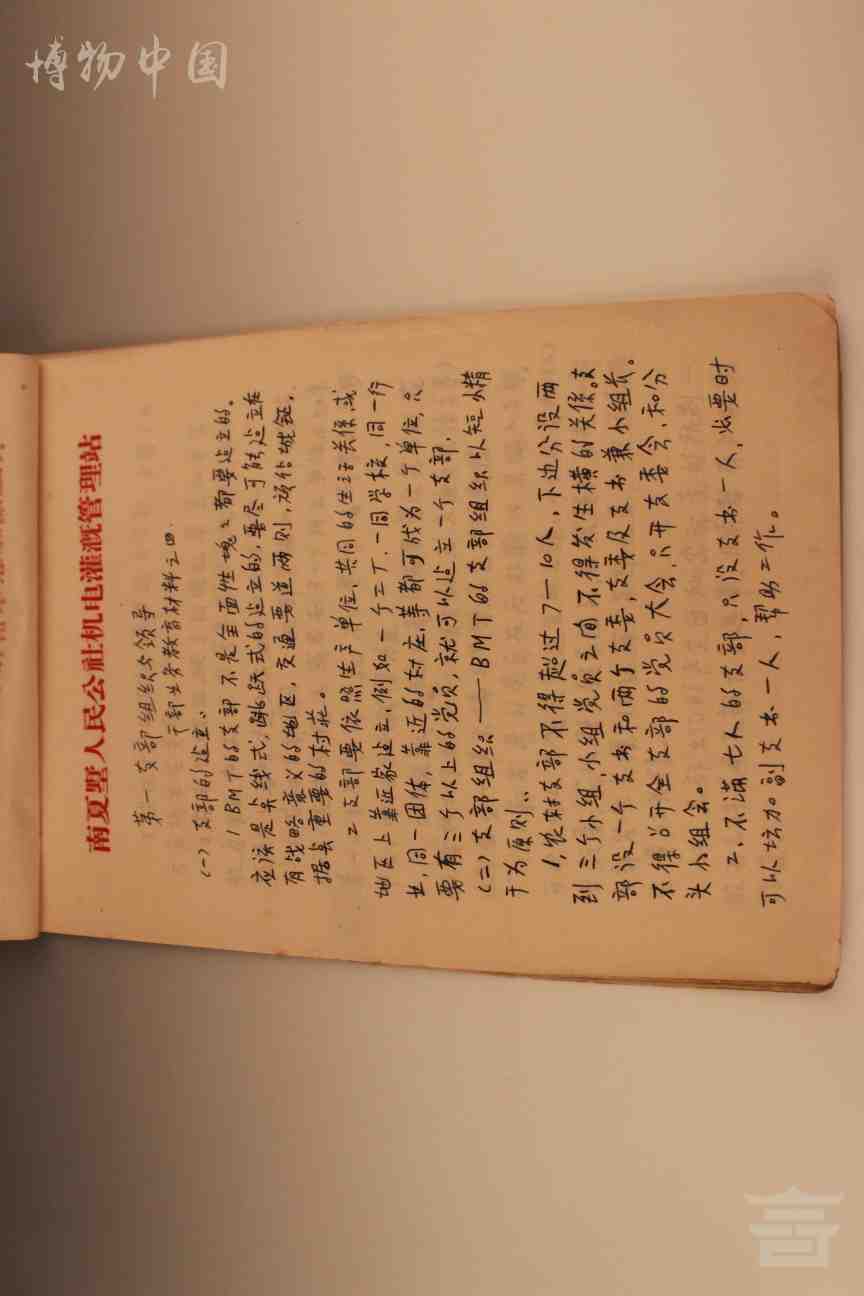 博物中国
南夏墅人民公社机电灌溉管理站
第一 支部组织与领导
干部业务教育材料之四.
(一) 支部的建立、
1 BMT的支部不是全面性塊々都要建立的。
应该是点线式,跳跃式的建立的,要尽可能建立在
有战略意义的地区,交通要道两则,顽伪城鎮,
据点重要的村庄。
2 支部要依照生产单位,共同的生活关係,或
地区上靠近家建立,例如一个工厂.一同学校,同一行
业,同一团体,靠近的村庄,等都可成为一个单位,只
要有三个以上的党员,就可以建立一个支部.
(二) 支部组织——BMT的支部组织以短小精
干为原则、
1,农村支部不得超过7—10人,下边分设两
到三个小组,小组党员之间不得发生横的关係。支
部设一个支书和两个支委,支委及支书兼小组长。
不得召开全支部的党员大会,只开支委会,和分
头小组会。
2、不满七人的支部,只设支书一人,必要时
可以培加副支书一人,帮助工作。